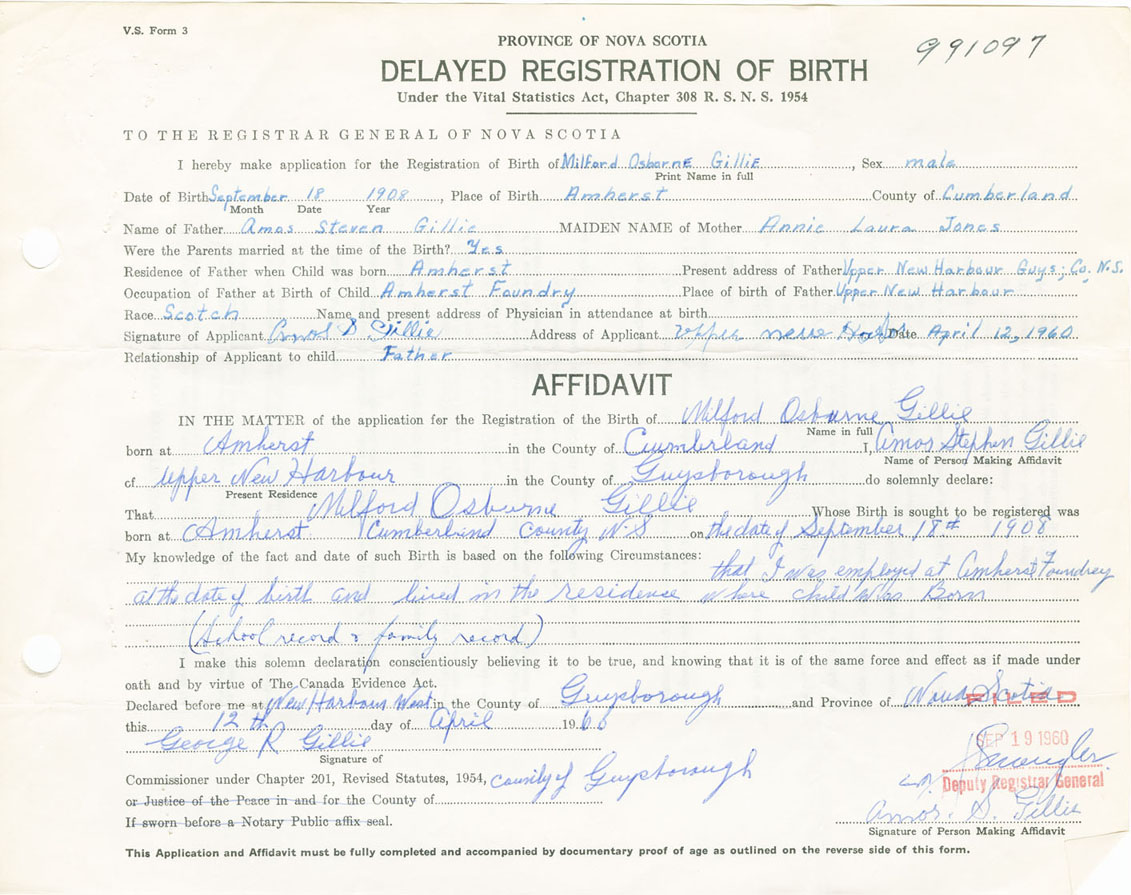 V.S. Form 3
991097
PROVINCE OF NOVA SCOTIA
DELAYED REGISTRATION OF BIRTH
Under the Vital Statistics Act, Chapter 308 R. S. N. S. 1954
TO THE REGISTRAR GENERAL OF NOVA SCOTIA
I hereby make application for the Registration of Birth of Milford Osborne Gillie, Sex male
Print Name in full
Date of Birth September 18 1908, Place of Birth Amherst County of Cumberland
Month Date Year
Name of Father Amos Steven Gillie MAIDEN NAME of Mother Annie Laura Jones
Were the Parents married at the time of the Birth? Yes
Residence of Father when Child was born Amherst Present address of Father Upper New Harbour Guys; Co, N.S.
Occupation of Father at Birth of Child Amherst Foundry Place of birth of Father Upper New Harbour
Race Scotch Name and present address of Physician in attendance at birth
Signature of Applicant Amos S Gillie Address of Applicant Upper new Date April 12, 1960
Relationship of Applicant to child Father
AFFIDAVIT
IN THE MATTER of the application for the Registration of the Birth of Milford Osburne Gillie
Name in full
born at Amherst in the County of Cumberland I, Amos Stephen Gillie
Name of Person Making Affidavit
of Upper New Harbour in the County of Guysborough do solemnly declare:
Present Residence
That Milford Osburne Gillie Whose Birth is sought to be registered was
born at Amherst Cumberland County N S on the date of September 18th 1908
My knowledge of the fact and date of such Birth is based on the following Circumstances:
that I was employed at Amherst Foundrey
at the date of birth and lived in the residence where child was Born
(School record & family record)
I make this solemn declaration conscientiously believing it to be true, and knowing that it is of the same force and effect as if made under
oath and by virtue of The Canada Evidence Act.
Declared before me at New Harbour West in the County of Guysborough and Province of Nova Scotia
FILED
this 12th day of April 1960
SEP 19 1960
George R Gillie
Signature of
Deputy Registrar General
Commissioner under Chapter 201, Revised Statutes, 1954, county of Guysborough
or Justice of the Peace in and for the County of
Amos. S. Gillie
If sworn before a Notary Public affix seal.
Signature of Person Making Affidavit
This Application and Affidavit must be fully completed and accompanied by documentary proof of age as outlined on the reverse side of this form.